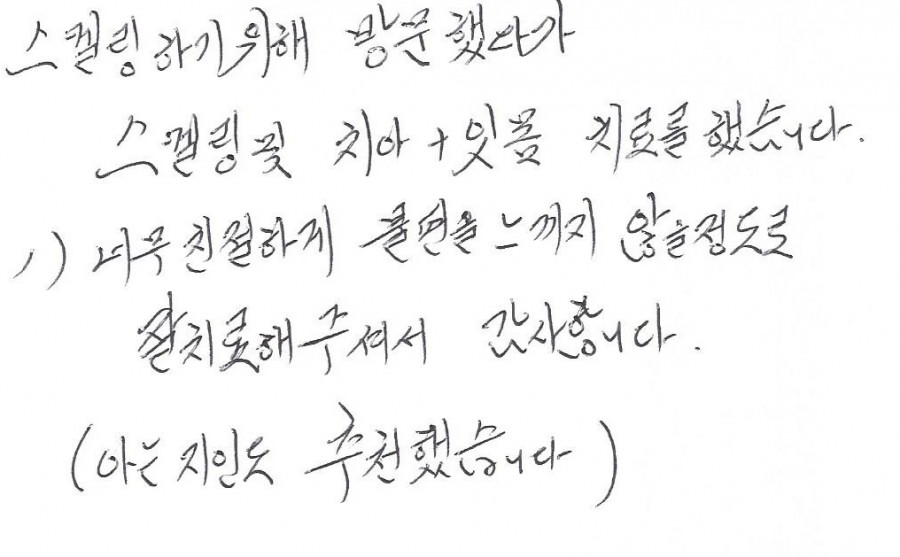 스켈링하기위해 방문했다가
스켈링및 치아+잇몸 치료를했습니다.
1) 너무친절하게 불편을느끼지 않을정도로
잘치료해주셔서 감사합니다.
(아는지인도 추천했습니다)